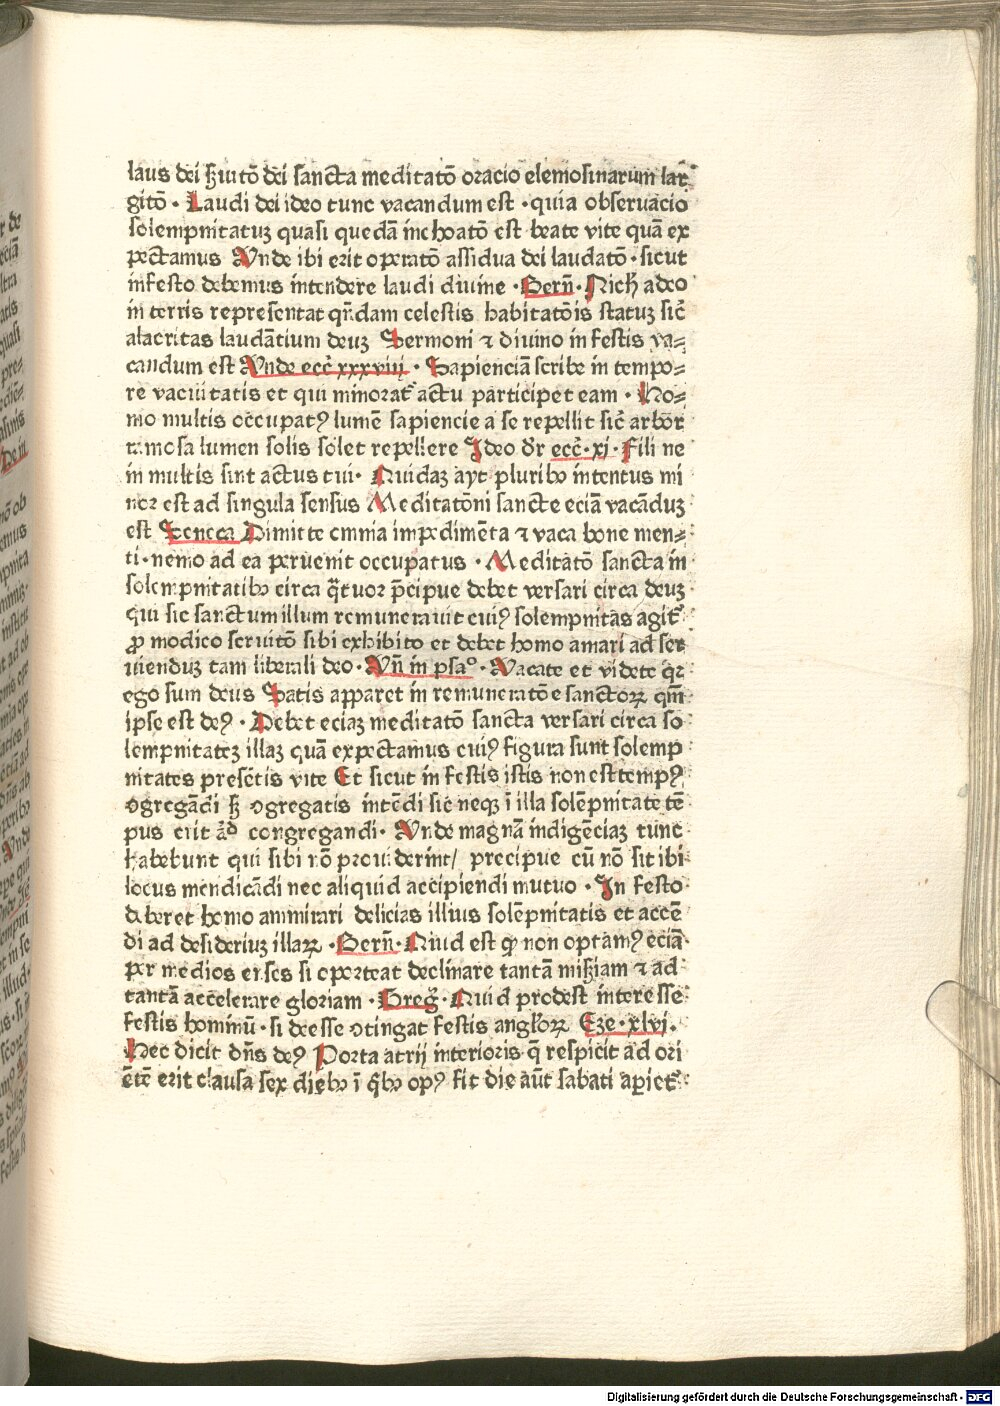 laus dei ẜuitō dei sancta meditatō oracio elemosinarum lar
gitō · Laudi dei ideo tunc vacandum est · quia obseruacio
solempnitatuꝫ quasi quedā inchoatō est beate vite quā ex
pectamus Vnde ibi erit operatō assidua dei laudatō · sicut
in festo debemus intendere laudi diuine · Berñ · Nichil adeo
in terris representat quādam celestis habitatōis statuꝫ sic̄
alacritas laudātium deuꝫ Sermoni ⁊ diuino in festis va⸗
candum est Vnde ecc̄ xxxviij · Sapienciā scribe in tempo⸗
re vacuitatis et qui minorat᷑ actu participet eam · Ho⸗
mo multis occupatꝰ lumē sapiencie a se repellit sic̄ arbor
ramosa lumen solis solet repellere Ideo dr̄ ecc̄ · xi · Fili ne
in multis sint actus tui · Quidaꝫ ayt pluribꝰ intentus mi
nor est ad singula sensus Meditatōni sancte eciā vacāduꝫ
est Seneca Dimitte omnia impedimēta ⁊ vaca bone men⸗
ti · nemo ad ea peruenit occupatus · Meditatō sancta in
solempnitatibꝰ circa q̄tuor p̄cipue debet versari circa deuꝫ
qui sic sanctum illum remunerauit cuiꝰ solempnitas agit᷑
ꝓ modico seruitō sibi exhibito et debet homo amari ad ser
uienduꝫ tam liberali deo · Vñ in psaᵒ · Vacate et videte qꝛ
ego sum deus Satis apparet in remuneratōe sanctoꝝ qm̄
ipse est deꝰ · Debet eciaꝫ meditatō sancta versari circa so
lempnitateꝫ illaꝫ quā expectamus cuiꝰ figura sunt solemp
nitates presētis vite Et sicut in festis istis non est tempꝰ
ꝯgregādi ẜꝫ ꝯgregatis intēdi sic neqꝫ ī illa solēpnitate tē
pus erit a᷑d congregandi · Vnde magnā indigēciaꝫ tunc
habebunt qui sibi nō prouiderint/ precipue cū nō sit ibi
locus mendicādi nec aliquid accipiendi mutuo · In festo
deberet homo ammirari delicias illius solēpnitatis et accē
di ad desideriuꝫ illaꝝ · Berñ · Quid est ꝙ non optamꝰ eciā
per medios enses si oporteat declinare tantā miẜiam ⁊ ad
tantā accelerare gloriam · Greg᷑ · Quid prodest interesse
festis hominū · si deesse ꝯtingat festis angl̄oꝝ Eze · xlvi ·
Hec dicit dn̄s deꝰ Porta atrij interioris q̄ respicit ad ori
ētē erit clausa sex diebꝰ ī q̄bꝰ opꝰ fit die aūt sabati apiet᷑
Digitalisierung gefördert durch die Deutsche Forschungsgemeinschaft - DFG